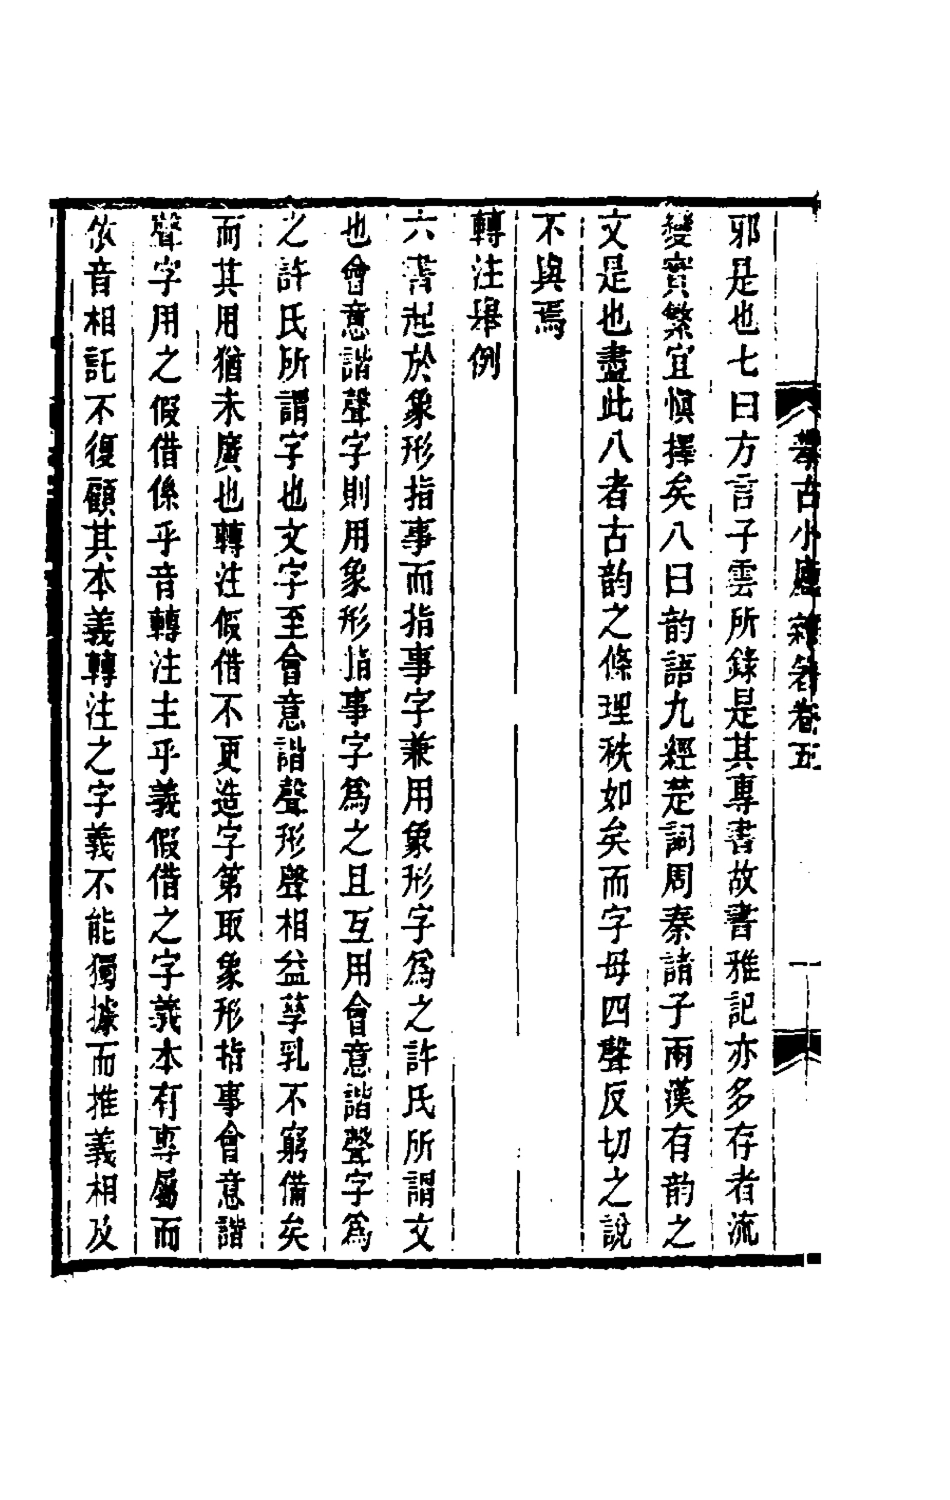 攀古小廬雜著卷五
一
邪是也七曰方言子雲所錄是其專書故書雅記亦多存者流
變實繁宜愼擇矣八曰韵語九經楚詞周秦諸子兩漢有韵之
文是也盡此八者古韵之條理秩如矣而字母四聲反切之說
不與焉
轉注舉例
六書起於象形指事而指事字兼用象形字爲之許氏所謂文
也會意諧聲字則用象形指事字爲之且互用會意諧聲字爲
之許氏所謂字也文字至會意諧聲形聲相益孳乳不窮備矣
而其用猶未廣也轉注假借不更造字第取象形指事會意諧
聲字用之假借係乎音轉注主乎義假借之字義本有專屬而
依音相託不復顧其本義轉注之字義不能獨據而推義相及